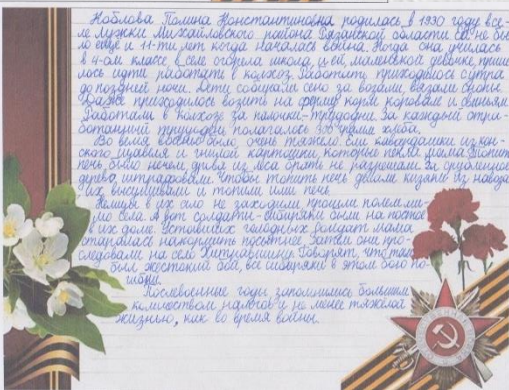 Коблова Полина Константиновна родилась в 1930 году в се-
ле Лужки Михайловского района Рязанской области. Ей не бы-
ло ещё и 11-ти лет когда началась война. Когда она училась
в 4-ом классе в селе сгорела школа и ей, маленькой девочке, приш-
лось идти работать в колхоз. Работать приходилось с утра
до поздней ночи. Дети собирали сено за возами, вязали снопы.
Даже приходилось возить на ферму корм коровам и свиньям.
Работали в колхозе за палочки-трудодни. За каждый отра-
ботанный трудодень полагалось 300 грамм хлеба.
Во время войны было очень тяжело. Ели кавардашки из кон-
ского щавеля и гнилой картошки, которые пекла мама. Топить
печь было нечем, дрова из леса брать не разрешали. За спиленное
дерево штрафовали. Чтобы топить печь делали кизяки из навоза
их высушивали и топили ими печь.
Немцы в их село не заходили, прошли полем ми-
мо села. А вот солдаты-сибиряки были на постое
в их доме. Уставших голодных солдат мама
старалась накормить посытнее. Затем они про-
следовали на село Хитровщину. Говорят, что там
был жестокий бой, все сибиряки в этом бою по-
гибли.
Послевоенные годы запомнились большим
количеством налогов и не менее тяжёлой
жизнью, как во время войны.